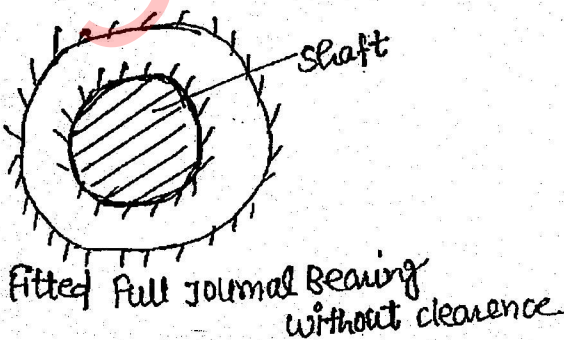 Shaft
Fitted Full Journal Bearing
without clearence